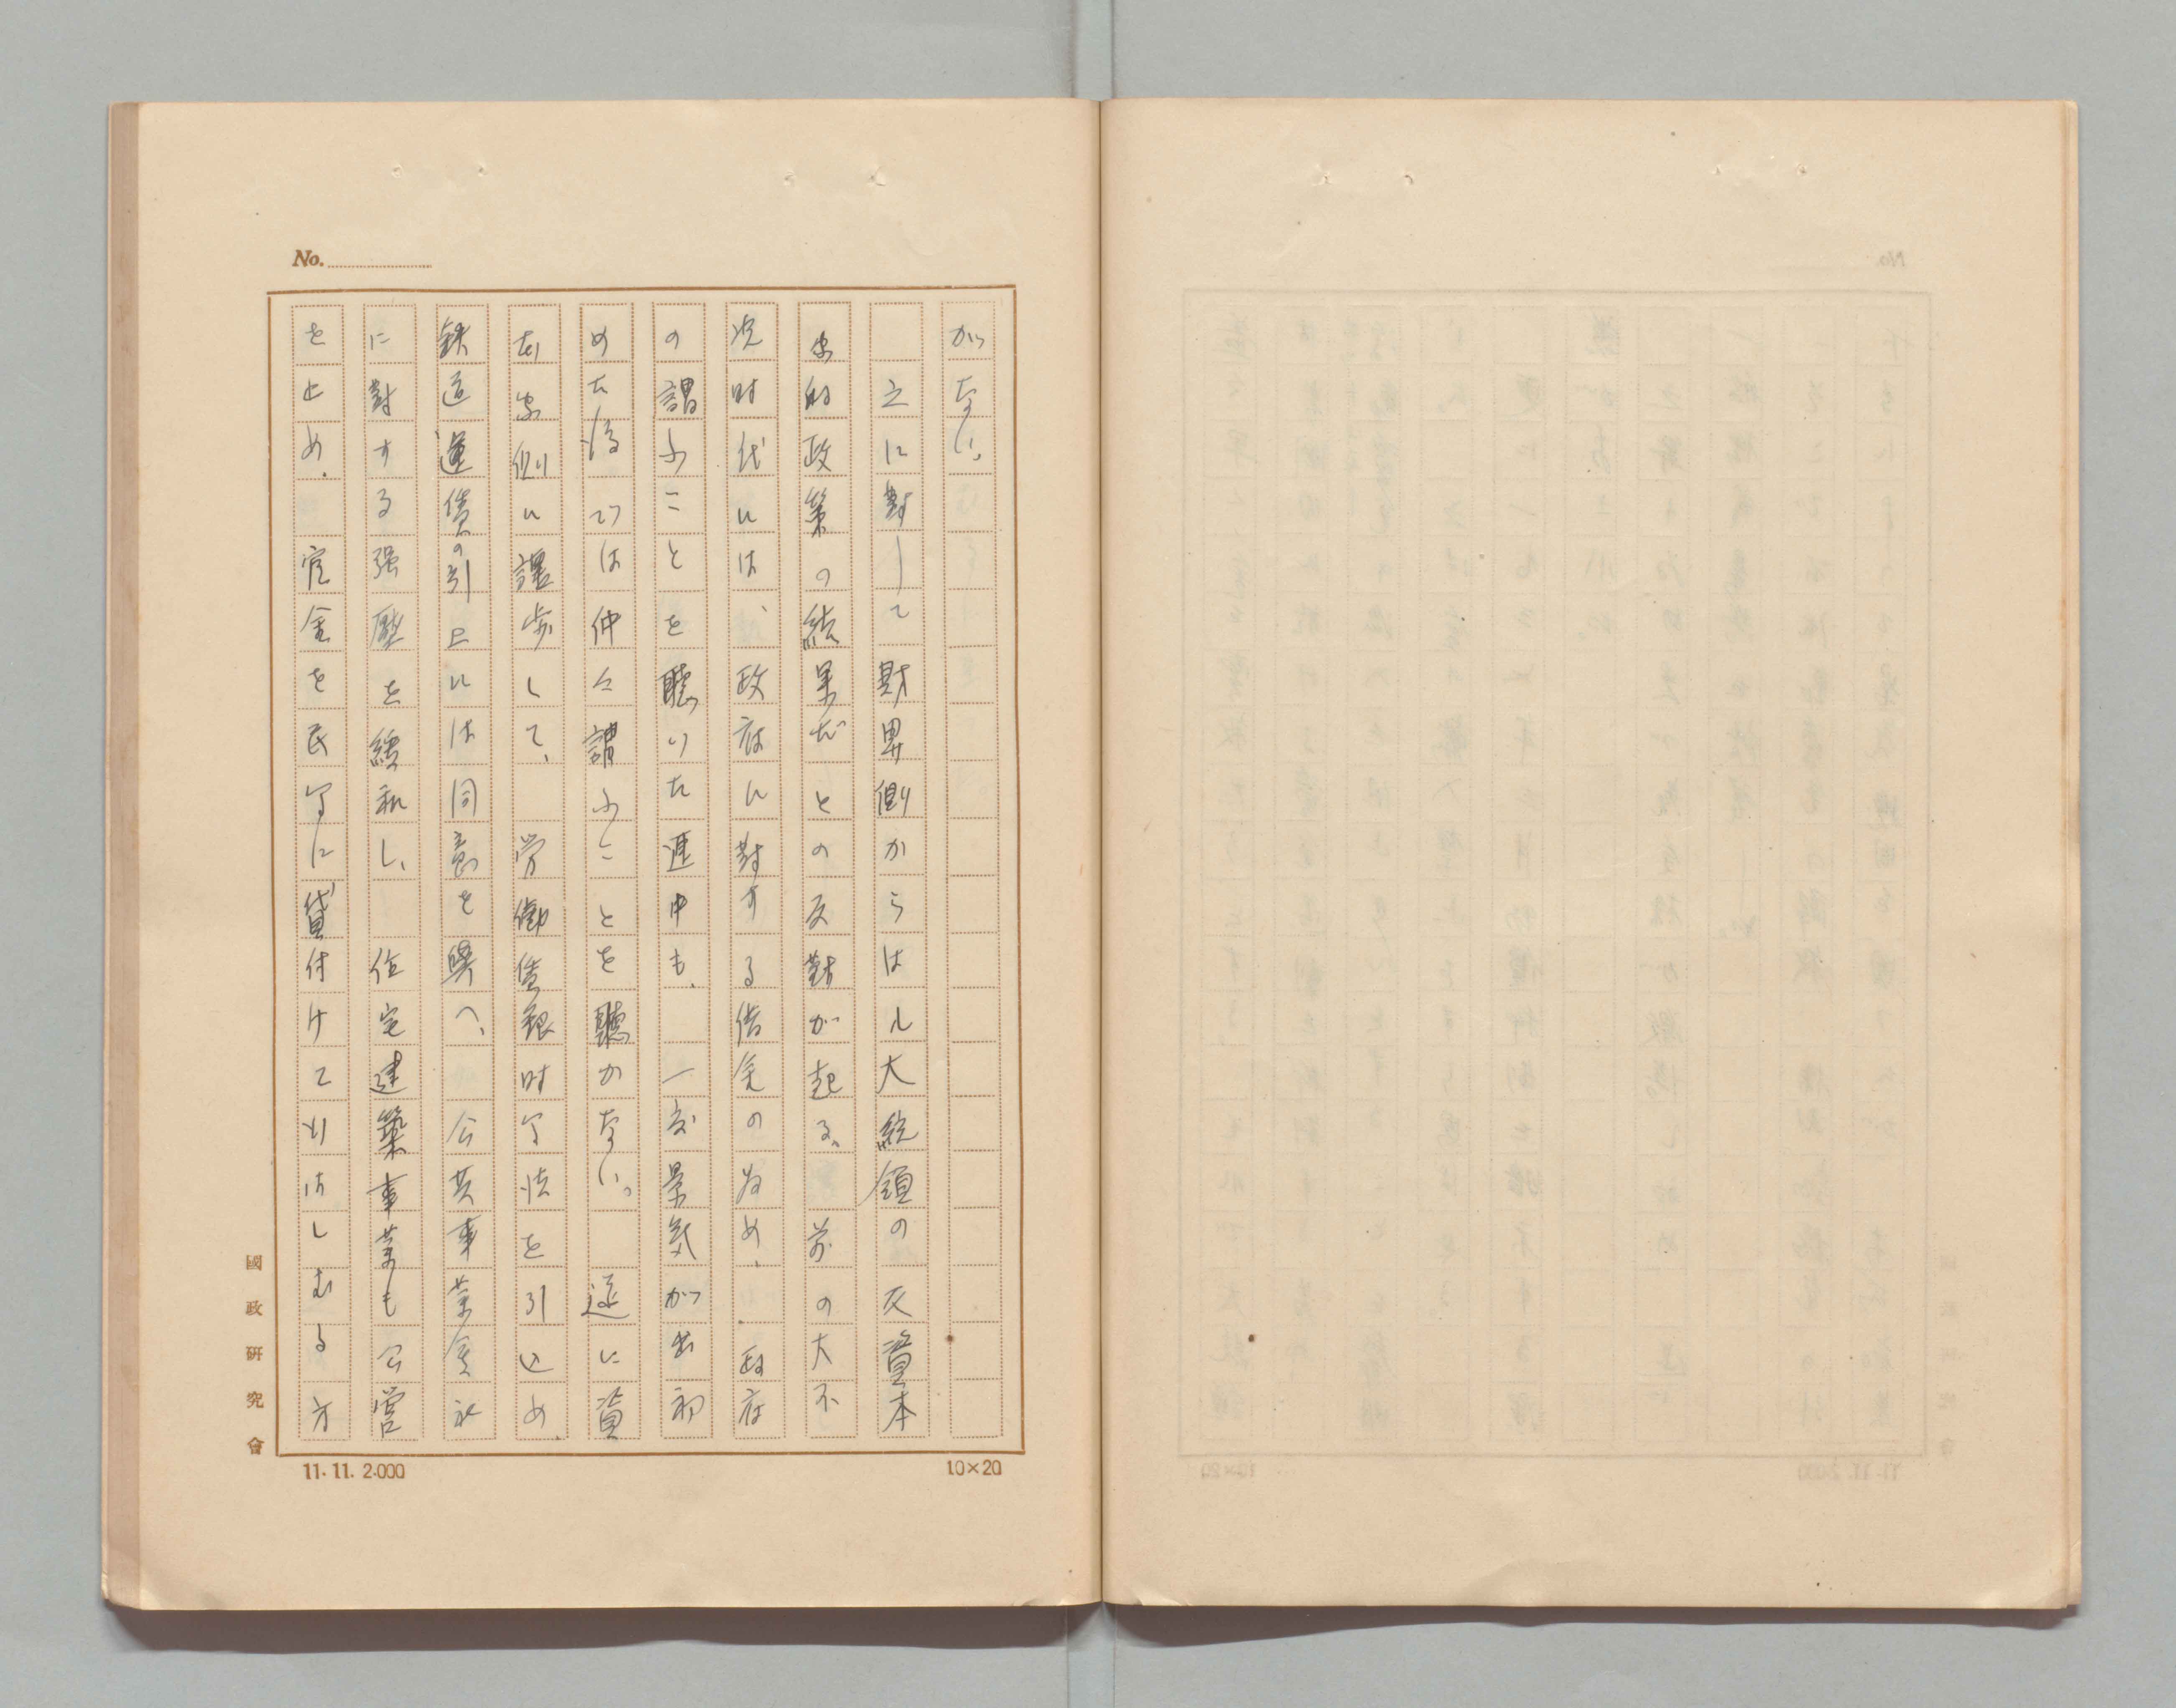 No.
がない。
之に對して財界側からはル大統領の反資本
家的政策の結果だとの反對が起る、前の大不
況时代には、政府に對する借金の為め、政府
の謂ふことを聽いた連中も、一度景気が出初
めた後では仲々謂ふことを聽かない。逆に資
本家側に讓歩して、労働賃銀时间法を引込め、
鉄道運賃の引上には同意を與へ、公共事業会社
に對する强壓を緩和し、住宅建築事業も公営
を止め、官金を民间に貸付けて行はしむる方
國政研究會
11.11.2.000
10×20